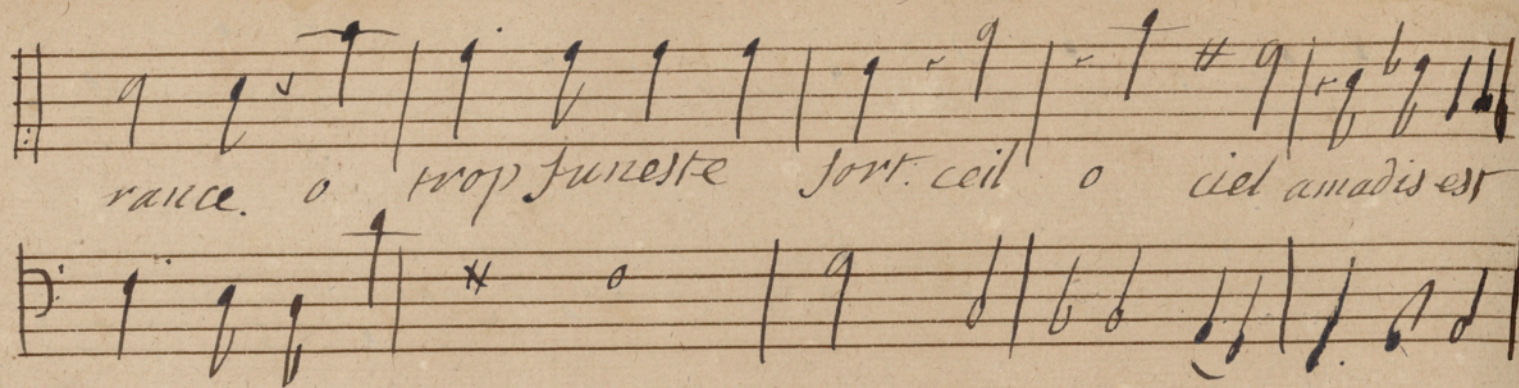 rance. o trop funeste sort. ceil o ciel amadis est